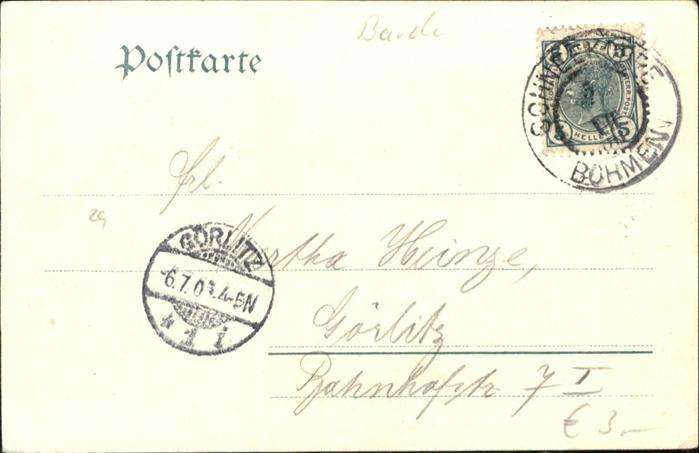 Postkarte
5 5
HELLER
BÖHMEN
Frl.
Martha Heinze,
GÖRLITZ
-6.7.03.4-5N
* 1 i
Görlitz
Bahnhofstr 7 I
€ 3,-
29